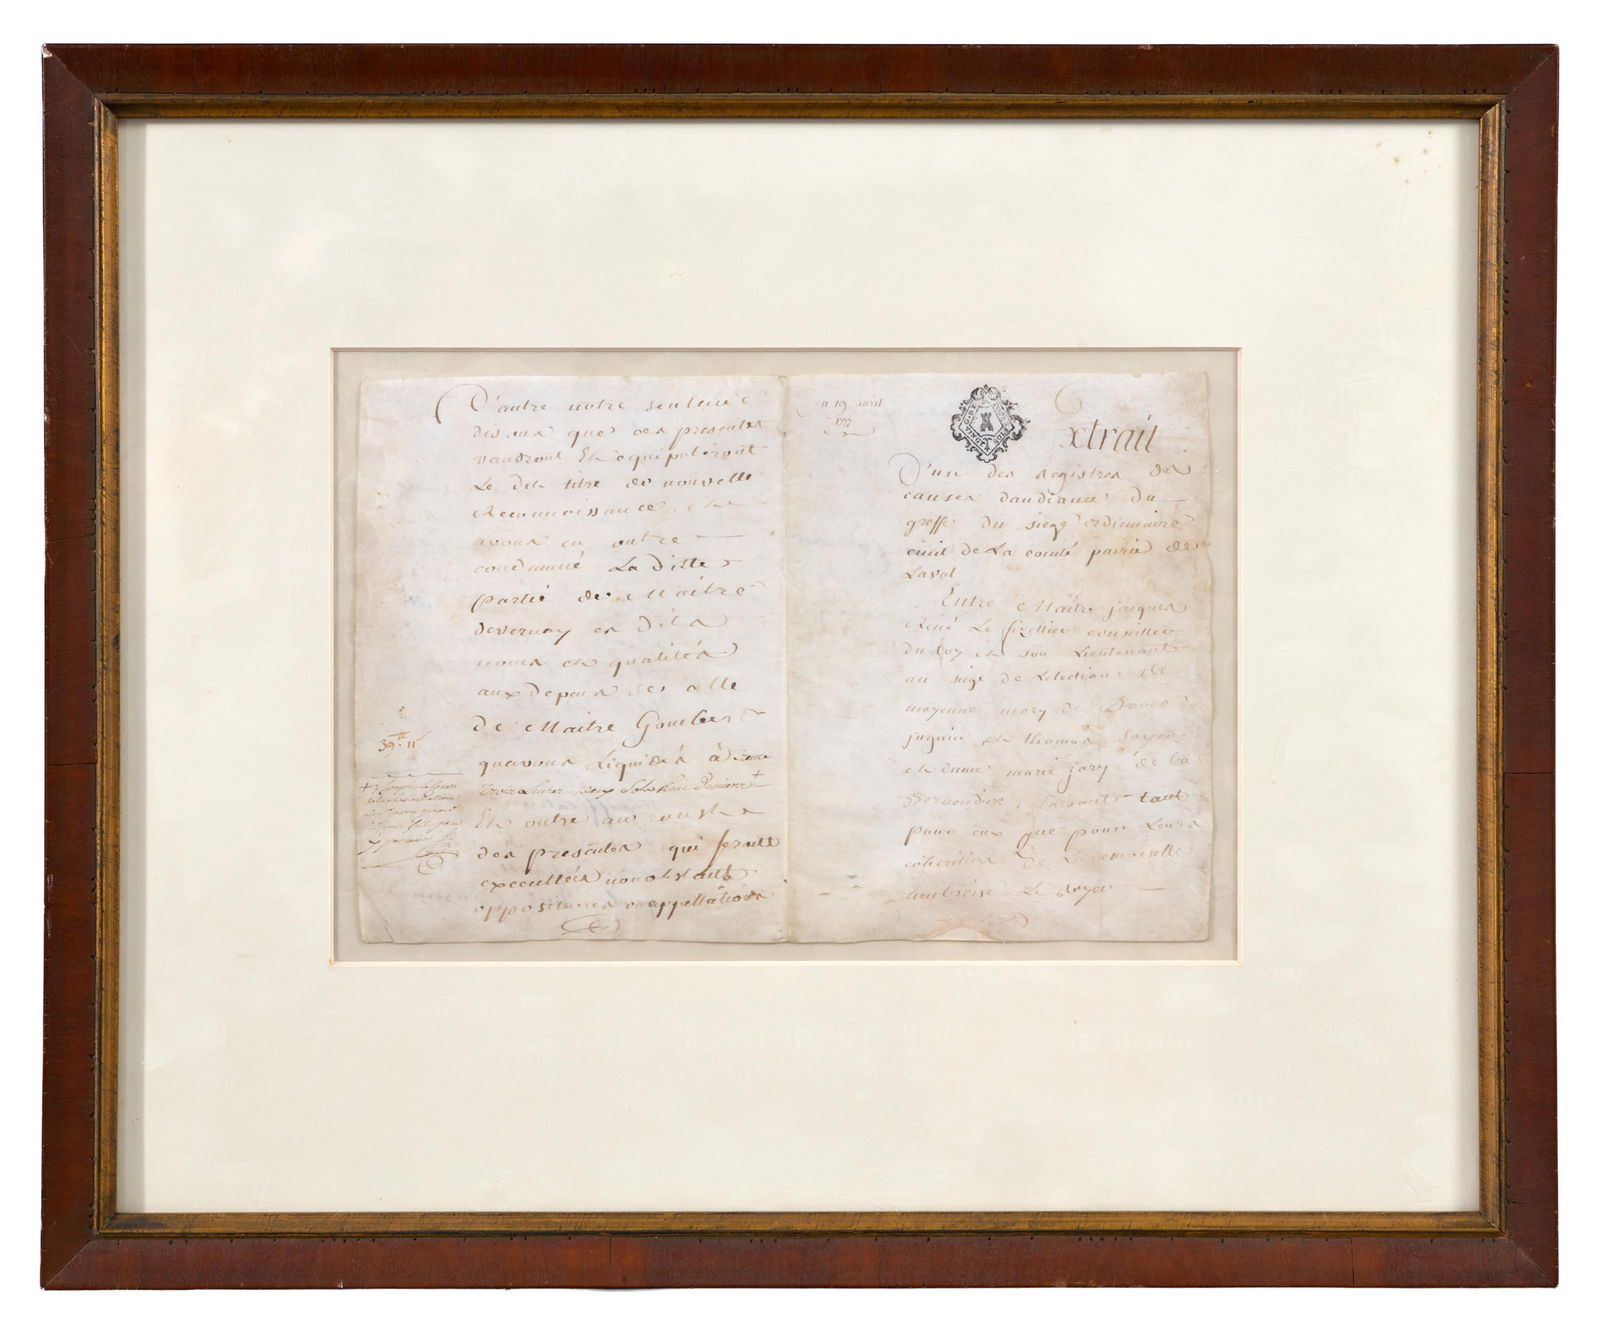 D'autre notre sentence
disons que ces presentes
vaudront Et equipoleront
Le dit titre de nouvelle
Reconnoissance, et
avons en outre
condamné La ditte
partie de Maitre
devernay es dits
noms et qualités
aux depens de celle
de Maitre Goubert
quavons Liquidés à trente
trois Livres deux sols
Et outre au coust
des presentes qui seront
executtés nonobstant
oppositions ou appellations
39.tt 11.s
n 19 avril
1777
G. DE
Extrait
D'un des Registres des
causes daudiance du
greffe du siege ordinnaire
civil de La comté pairie de
Laval
Entre Maitre jacques
René Le conseiller
du Roy et son Lieutenant
au siege de Lelection de
mayenne mary de Dame
juquin et thomas
et dame marie jary de La
, faisant tant
pour eux que pour Leurs
coheritiers de La demoiselle
ambroise Le Royer